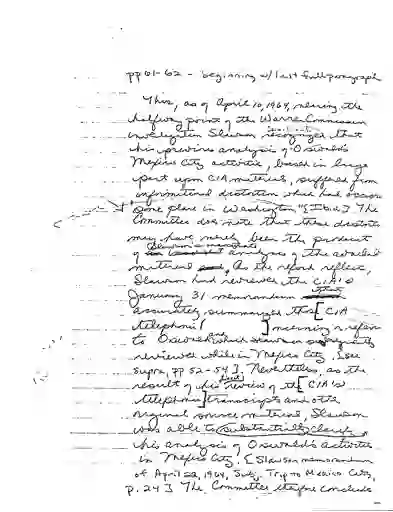 pp 61-62 - beginning w/ last full paragraph
Thus, as of April 10, 1964, nearing the
halfway point of the Warren Commission
investigation Slawson recognized that
his previous analysis of Oswald's
Mexico City activities, based in large
part upon CIA materials, suffered from
informational distortion which had
place in Washington" [Ibid.] The
Committee does note that these
may have merely been the product
of Slawson's analysis of the
material As the record reflects,
Slawson had reviewed the CIA's
January 31 memorandum which
accurately summarized the [CIA
telephonic ] refer
to Oswald and which Slawson
reviewed while in Mexico City. [see
supra, pp 52-54]. Nevertheless, as the
result of his direct review of the [CIA's
telephonic] transcripts and other
original source materials, Slawson
was able to substantially clarify
his analysis of Oswald's activities
in Mexico City. [Slawson memorandum
of April 22, 1964, Subj. Trip to Mexico City,
p. 24] The Committee therefore concludes